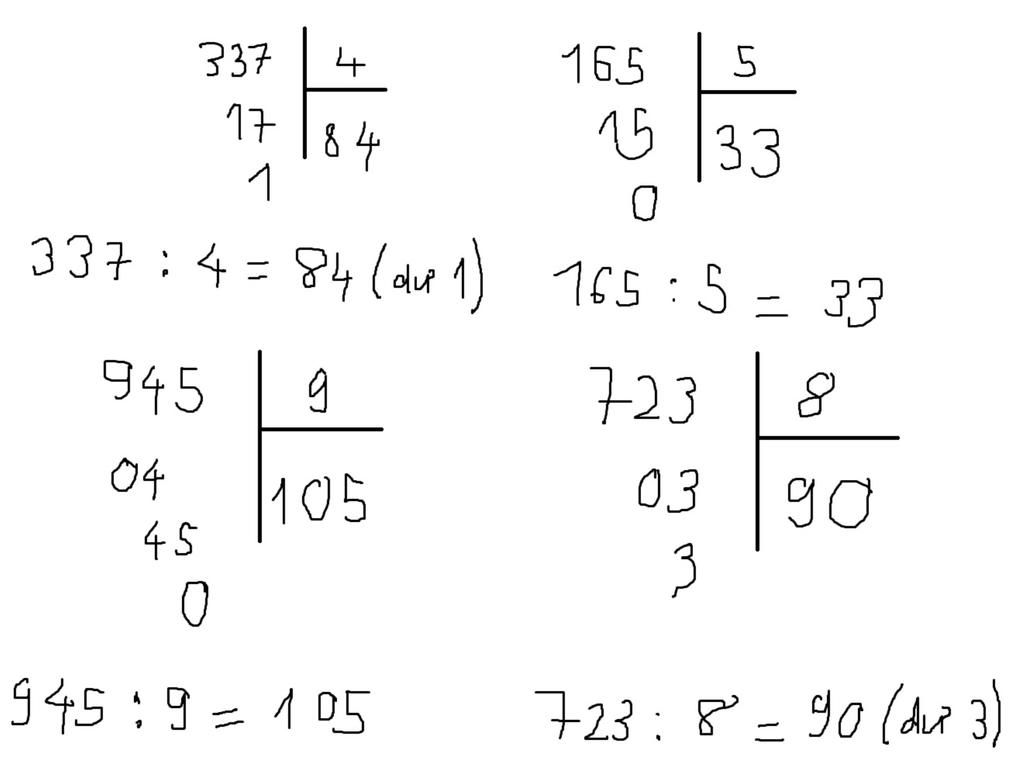 337 4
17 84
1
165 5
15 33
0
337 : 4 = 84 (dư 1)
165 : 5 = 33
945 9
04 105
45
0
723 8
03 90
3
945 : 9 = 105
723 : 8 = 90 (dư 3)